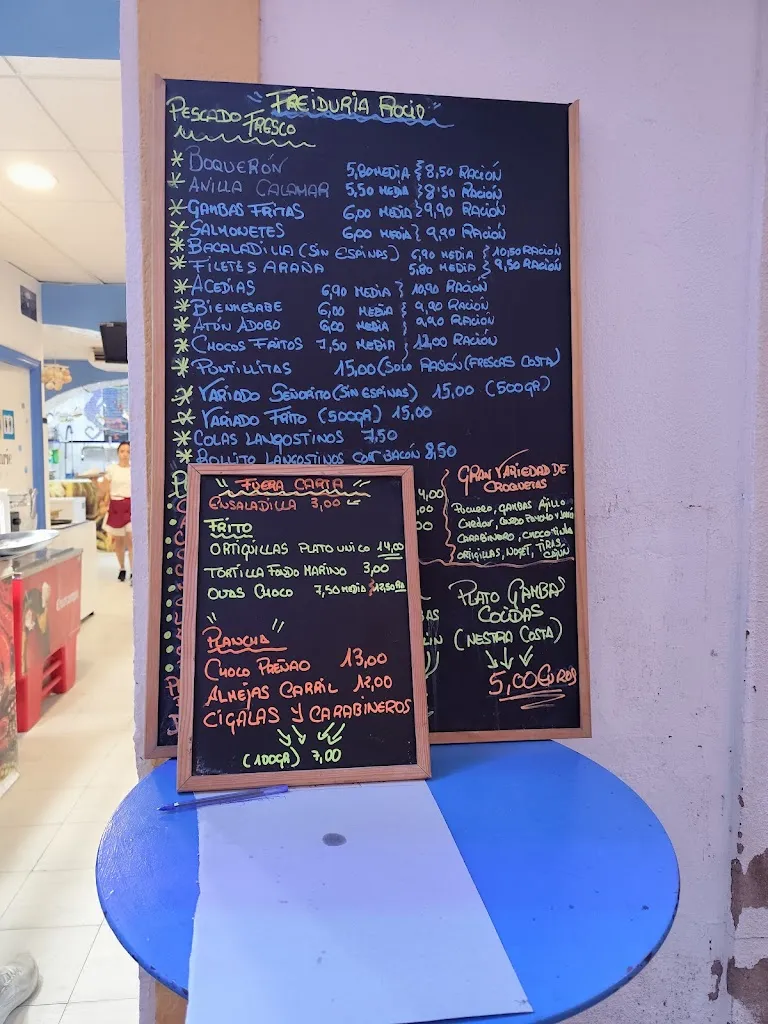 "FREIDURIA ROCIO"
PESCADO FRESCO
* BOQUERÓN 5,80 MEDIA } 8,50 RACIÓN
* ANILLA CALAMAR 5,50 MEDIA } 8'50 RACIÓN
* GAMBAS FRITAS 6,00 MEDIA } 9,90 RACIÓN
* SALMONETES 6,00 MEDIA } 9,90 RACIÓN
* BACALADILLA (SIN ESPINAS) 6,90 MEDIA } 10,50 RACIÓN
* FILETES ARAÑA 5,80 MEDIA } 9,50 RACIÓN
* ACEDIAS 6,90 MEDIA } 10,90 RACIÓN
* BIENMESABE 6,00 MEDIA } 9,90 RACIÓN
* ATÚN ADOBO 6,00 MEDIA } 9,90 RACIÓN
* CHOCOS FRITOS 7,50 MEDIA } 12,00 RACIÓN
* PUNTILLITAS 15,00 (SOLO RACIÓN (FRESCAS COSTA)
* VARIADO SEÑORITO (SIN ESPINAS) 15,00 (500GR)
* VARIADO FRITO (500GR) 15,00
* COLAS LANGOSTINOS 7,50
* ROLLITO LANGOSTINOS CON BACÓN 8,50
GRAN VARIEDAD DE
CROQUETAS
PUCHERO, GAMBAS AJILLO
CARABINERO, CHOCO TINTA
PLATO GAMBAS
COCIDAS
(NESTRA COSTA)
5,00 EUROS
"FUERA CARTA"
ENSALADILLA 3,00
FRITO
ORTIGUILLAS PLATO UNICO 14,00
TORTILLA FONDO MARINO 3,00
7,50 MEDIA } 12,50 RA
"PLANCHA"
CHOCO PREÑAO 13,00
ALMEJAS CARRIL 12,00
CIGALAS Y CARABINEROS
(100GR) 7,00